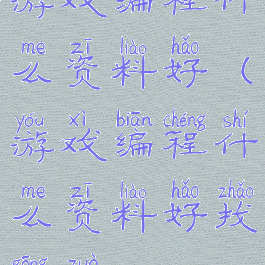 游戏编程什
me zī liào hǎo
么资料好（
yóu xì biān chéng shí
游戏编程什
me zī liào hǎo zhǎo
么资料好找
gōng zuò